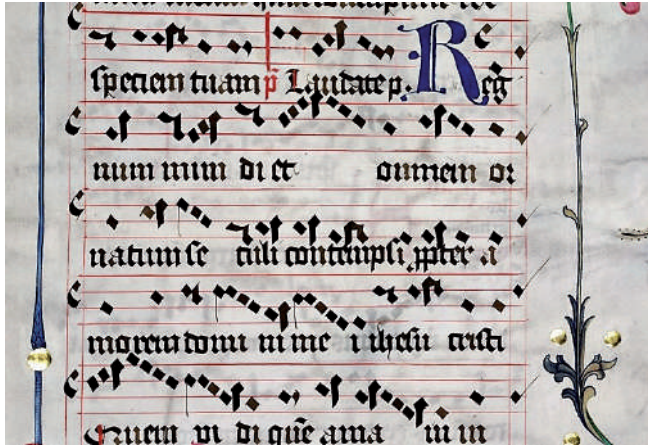 speciem tuam p̄ Laudate p. Reg
num mun di et omnem or
natum se culi contempsi ꝓpter a
morem domi ni me i ihesu cristi
Quem vi di quē ama ui in